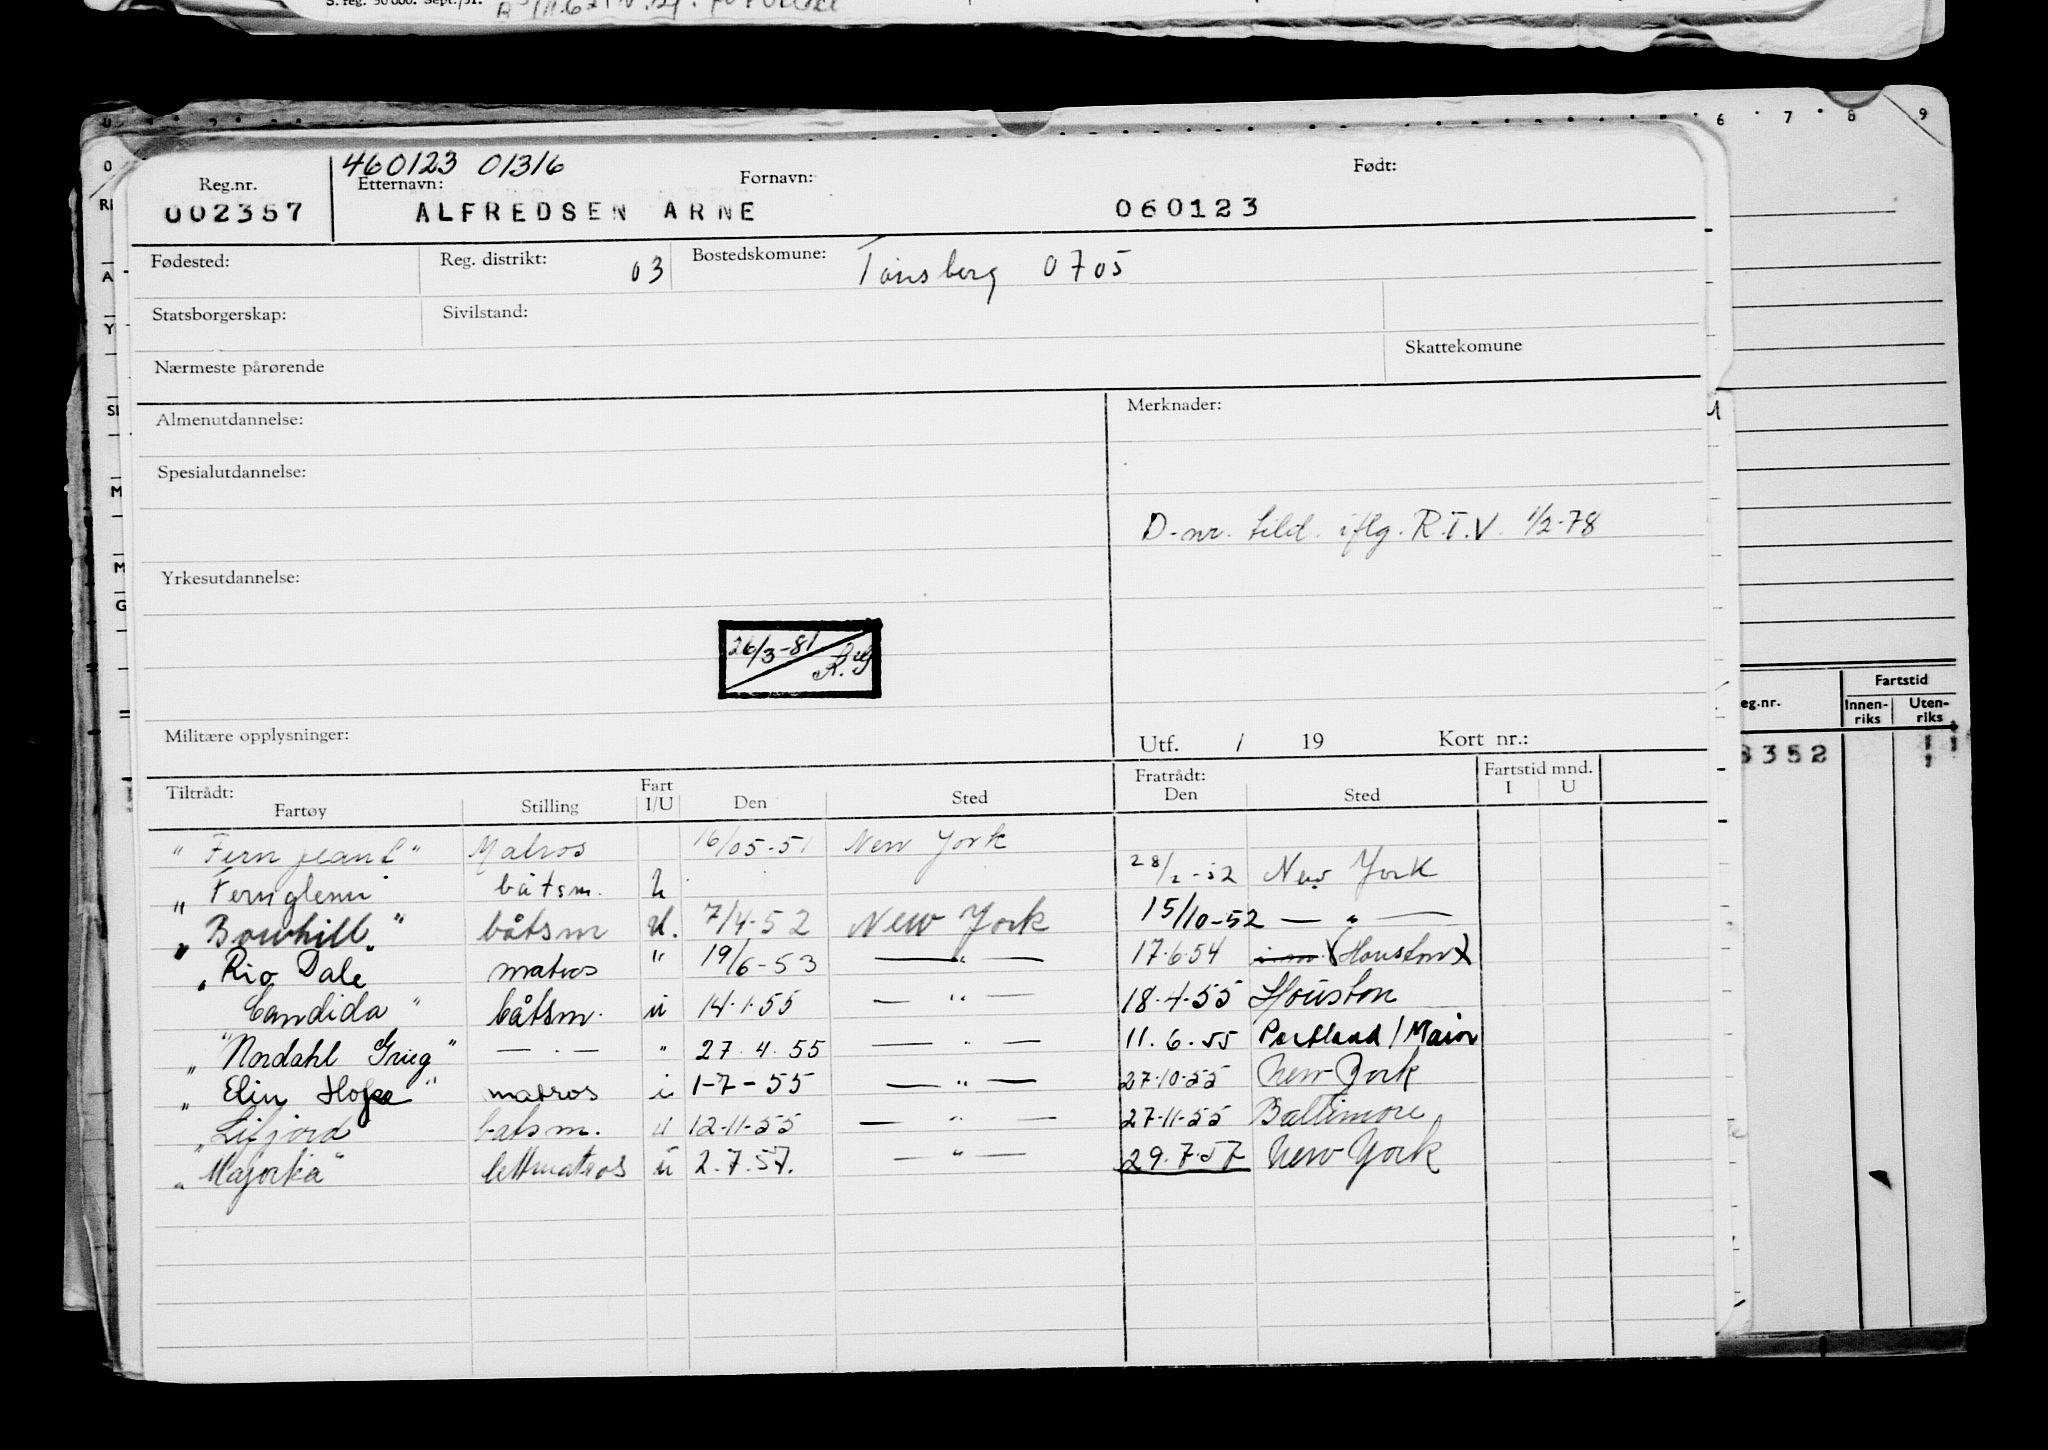 S. reg. 50 000. Sept./51.
0 6 7 8 9
460123 01316
Reg.nr. Etternavn: Fornavn: Født:
002357 ALFREDSEN ARNE 060123
Fødested: Reg. distrikt: 03 Bostedskomune: Tønsberg 0705
Statsborgerskap: Sivilstand:
Nærmeste pårørende Skattekomune
Almenutdannelse: Merknader:
Spesialutdannelse:
D-nr. tild. iflg. R.T.V. 1/2-78
Yrkesutdannelse:
26/3-81
Militære opplysninger: Utf. / 19 Kort nr.:
Tiltrådt: Fart Fratrådt: Fartstid mnd.
Fartøy Stilling I/U Den Sted Den Sted I U
"Fern pearl" Matros 16/05-51 New York
"Fernglenn båtsm. U 28/2-52 New York
"Bowhill" båtsm U. 7/4-52 New York 15/10-52 — " —
"Rio Dale" matros " 19/6-53 — " — 17.6.54 (Houston)
Candida" båtsm. u 14.1.55 — " — 18.4.55 Houston
"Nordahl Grieg" — . — " 27.4.55 — " — 11.6.55 Portland / Main
"Elin Hope" matros u 1-7-55 — " — 27.10.55 New York
"Lifjord båtsm. u 12-11-55 — " — 27-11-55 Baltimore
"Majorka" lettmatros u 2.7.57. — " — 29.7.57 New York
eg.nr. Fartstid
Innen-riks Uten-riks
3352